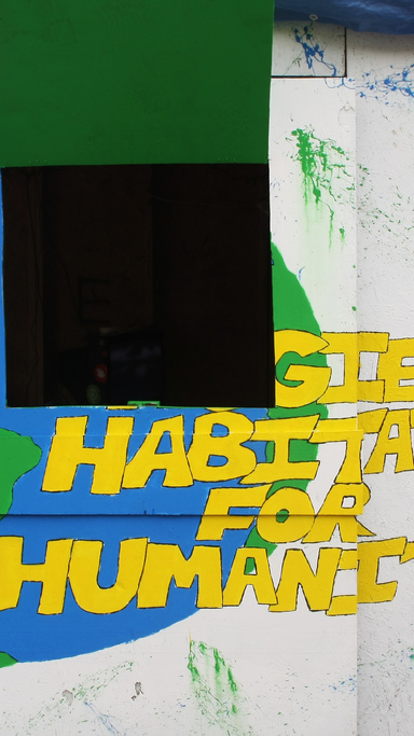 GIE
HABITA
FOR
HUMANIT